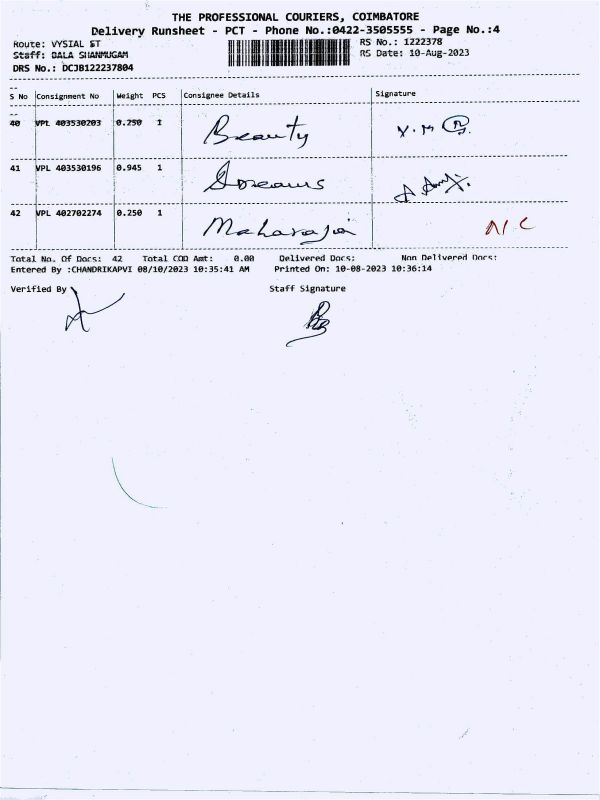 THE PROFESSIONAL COURIERS, COIMBATORE
Delivery Runsheet - PCT - Phone No.:0422-3505555 - Page No.:4
Route: VYSIAL ST
RS No.: 1222378
Staff: BALA SHANMUGAM
RS Date: 10-Aug-2023
DRS No.: DCJB122237804
S No Consignment No Weight PCS Consignee Details Signature
40 VPL 403530203 0.250 1 Beauty
41 VPL 403530196 0.945 1 Dreams
42 VPL 402702274 0.250 1 Maharaja N/C
Total No. Of Docs: 42 Total COD Amt: 0.00 Delivered Docs: Non Delivered Docs:
Entered By :CHANDRIKAPVI 08/10/2023 10:35:41 AM Printed On: 10-08-2023 10:36:14
Verified By Staff Signature